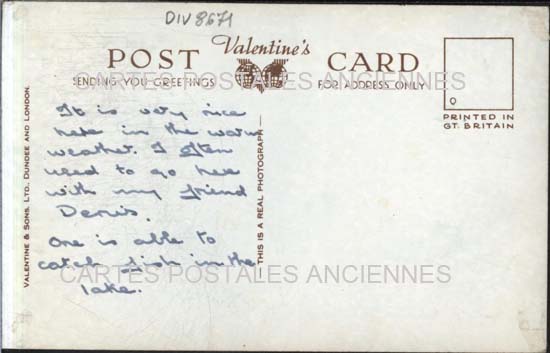 DIV8671
Valentine's
POST CARD
SENDING YOU GREETINGS
FOR ADDRESS ONLY
CARTES POSTALES ANCIENNES
PRINTED IN
GT. BRITAIN
It is very nice
here in the warm
weather. I often
used to go here
with my friend
Denis.
One is able to
catch fish in the
lake.
VALENTINE & SONS, LTD., DUNDEE AND LONDON.
— THIS IS A REAL PHOTOGRAPH —
CARTES POSTALES ANCIENNES